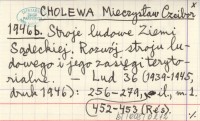 CHOLEWA Mieczysław Czcibor
1946b. Stroje ludowe Ziemi
Sądeckiej. Rozwój stroju lu-
dowego i jego zasięgi teryto-
rialne. — Lud 36 (1939-1945,
druk 1946): 256-279, il., m. 1.
452-453 (Rés).